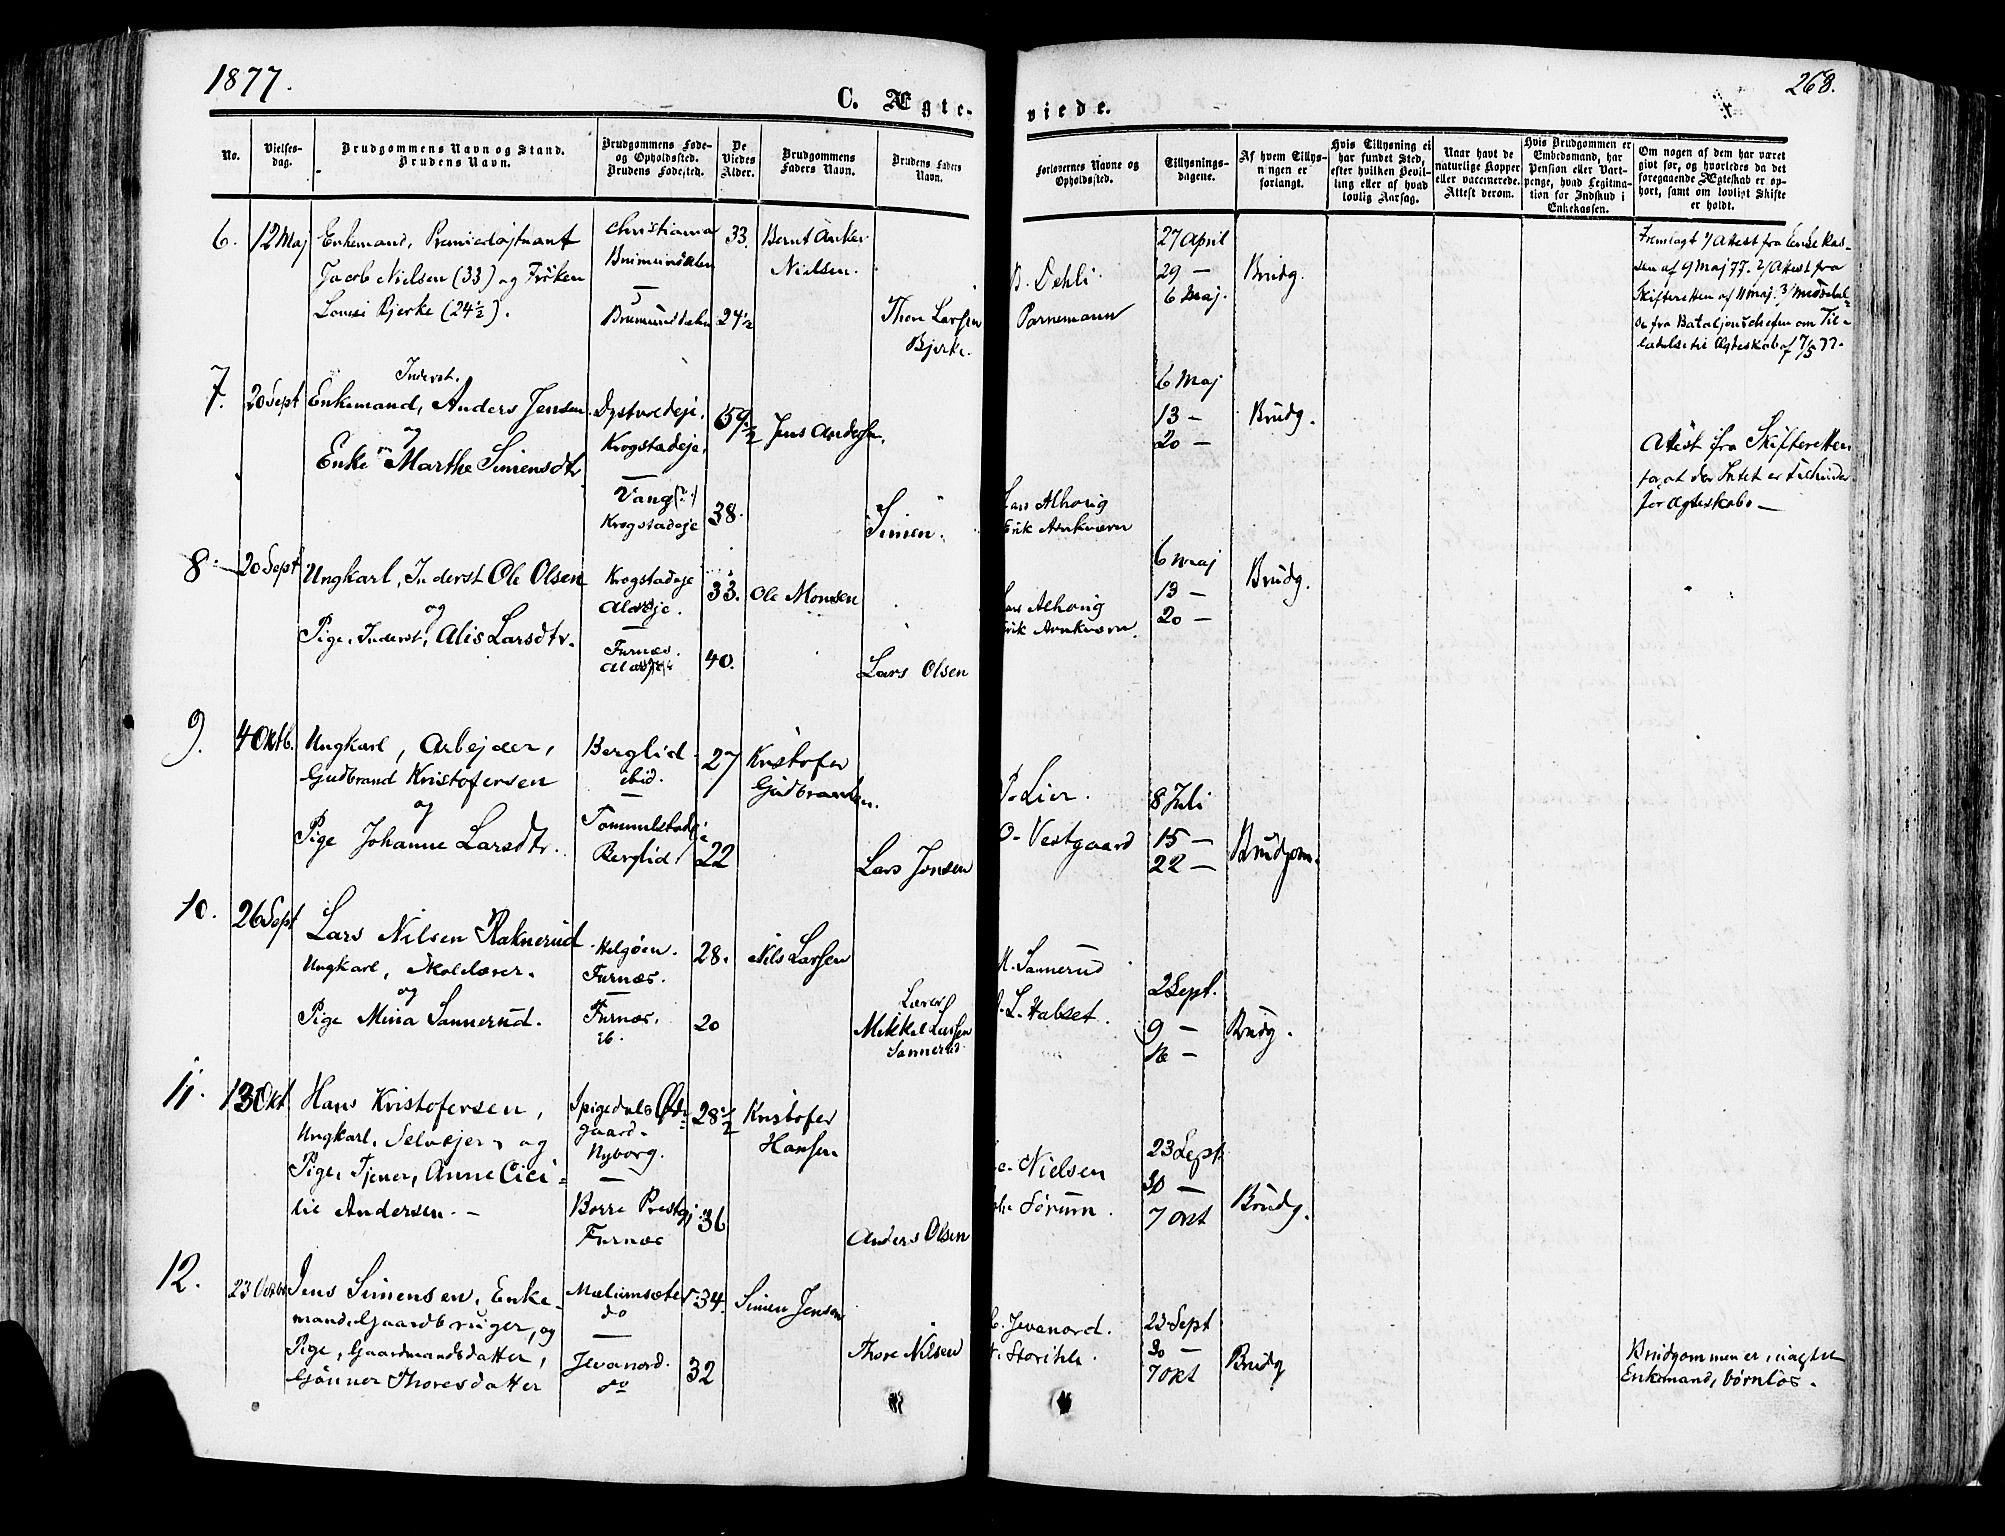 1877.
268.
C. Ægte-
viede.
No.
Vielses-
dag.
Brudgommens Navn og Stand.
Brudens Navn.
Brudgommens Føde-
og Opholdssted.
Brudens Fødested.
De
Viedes
Alder.
Brudgommens
Faders Navn.
Brudens Faders
Navn.
Forlovernes Navne og
Opholdssted.
Tillysnings-
dagene.
Af hvem Tillys-
ningen er
forlangt.
Hvis Tillysning ei
har fundet Sted,
efter hvilken Bevil-
ling eller af hvad
lovlig Aarsag.
Naar havt de
naturlige Kopper
eller vaccinerede.
Attest derom.
Hvis Brudgommen er
Embedsmand, har
Pension eller Vart-
penge, hvad Legitima-
tion for Indskud i
Enkekassen.
Om nogen af dem har været
gift før, og hvorledes da det
foregaaende Ægteskab er op-
hørt, samt om lovligt Skifte
er holdt.
6.
12 Maj
Enkemand, Premierløjtnant
Jacob Nielsen (33) og Frøken
Lovisi Bjerke (24½).
Christiania
Brumunddalen
Brumunddalen
33.
24½
Bernt Anker
Nielsen.
Thore Larsen
Bjerke.
B. Dehli
Parnemann
27 April
29 —
6 Maj.
Brudg.
Fremlagt 1/ Attest fra Enkekas-
sen af 9 Maj 77. 2/ Attest fra
Skifteretten af 11 Maj. 3/ Meddelel-
se fra Bataljonschefen om Til-
ladelse til Ægteskab af 7/5 77.
7.
20 Sept
Inderst.
Enkemand, Anders Jensen
og
Enke Marthe Simensdtr
Dystvedeje.
Krogstadeje.
Vang (?)
Krogstadeje
59½
38.
Jens Andersen.
"Simen".
Lars Alhovig
Erik Arnkværn
6 Maj
13 —
20 —
Brudg.
Attest fra Skifteretten
for at der Intet er til Hinder
for Ægteskabs —
8.
20 Sept
Ungkarl, Inderst Ole Olsen
og
Pige, Inderst, Alis Larsdtr.
Krogstadeje
Furnæs.
33.
40.
Ole Monsen
Lars Olsen
Lars Alhovig
Erik Arnkværn.
6 Maj
13 —
20 —
Brudg.
9.
4 Oktb.
Ungkarl, Arbejder,
Gudbrand Kristofersen
og
Pige Johanne Larsdtr.
Berglid
ibid.
Tommelstadeje
Berglid.
27
22
Kristofer
Gudbrandsen.
Lars Jonsen
P. Lier.
O. Vestgaard
8 Juli
15 —
22 —
Brudgom.
10.
26 Sept
Lars Nilsen Raknerud
Ungkarl, Skolelærer.
og
Pige Mina Sannerud.
Helgøen.
Furnæs.
Furnæs.
ib.
28.
20
Nils Larsen
Lærer
Mikkel Larsen
Sannerud.
M. Sannerud
L. Habset.
2 Sept.
9 —
16 —
Brudg.
11.
13 Okt
Hans Kristofersen,
Ungkarl, Selvejer, og
Pige, Tjener, Anne Cici-
lie Andersen. —
Spigedals Øde-
gaard.
Nyborg.
Borre Prestgj.
Furnæs
28½
36
Kristofer
Hansen
Anders Olsen
Nielsen
Sørum.
23 Sept.
30 —
7 Okt
Brudg.
12.
23 Octbr
Jens Simensen, Enke-
mand, Gaardbruger, og
Pige, Gaardmandsdatter,
Gønner Thoresdatter
Mæliumsæter
do
Jevanord.
do
34.
32
Simen Jensen
Thore Nilsen
Jevanord.
Storihle.
23 Sept
30 —
7 Okt
Brudg
Brudgommen er
Enkemand, børnløs.